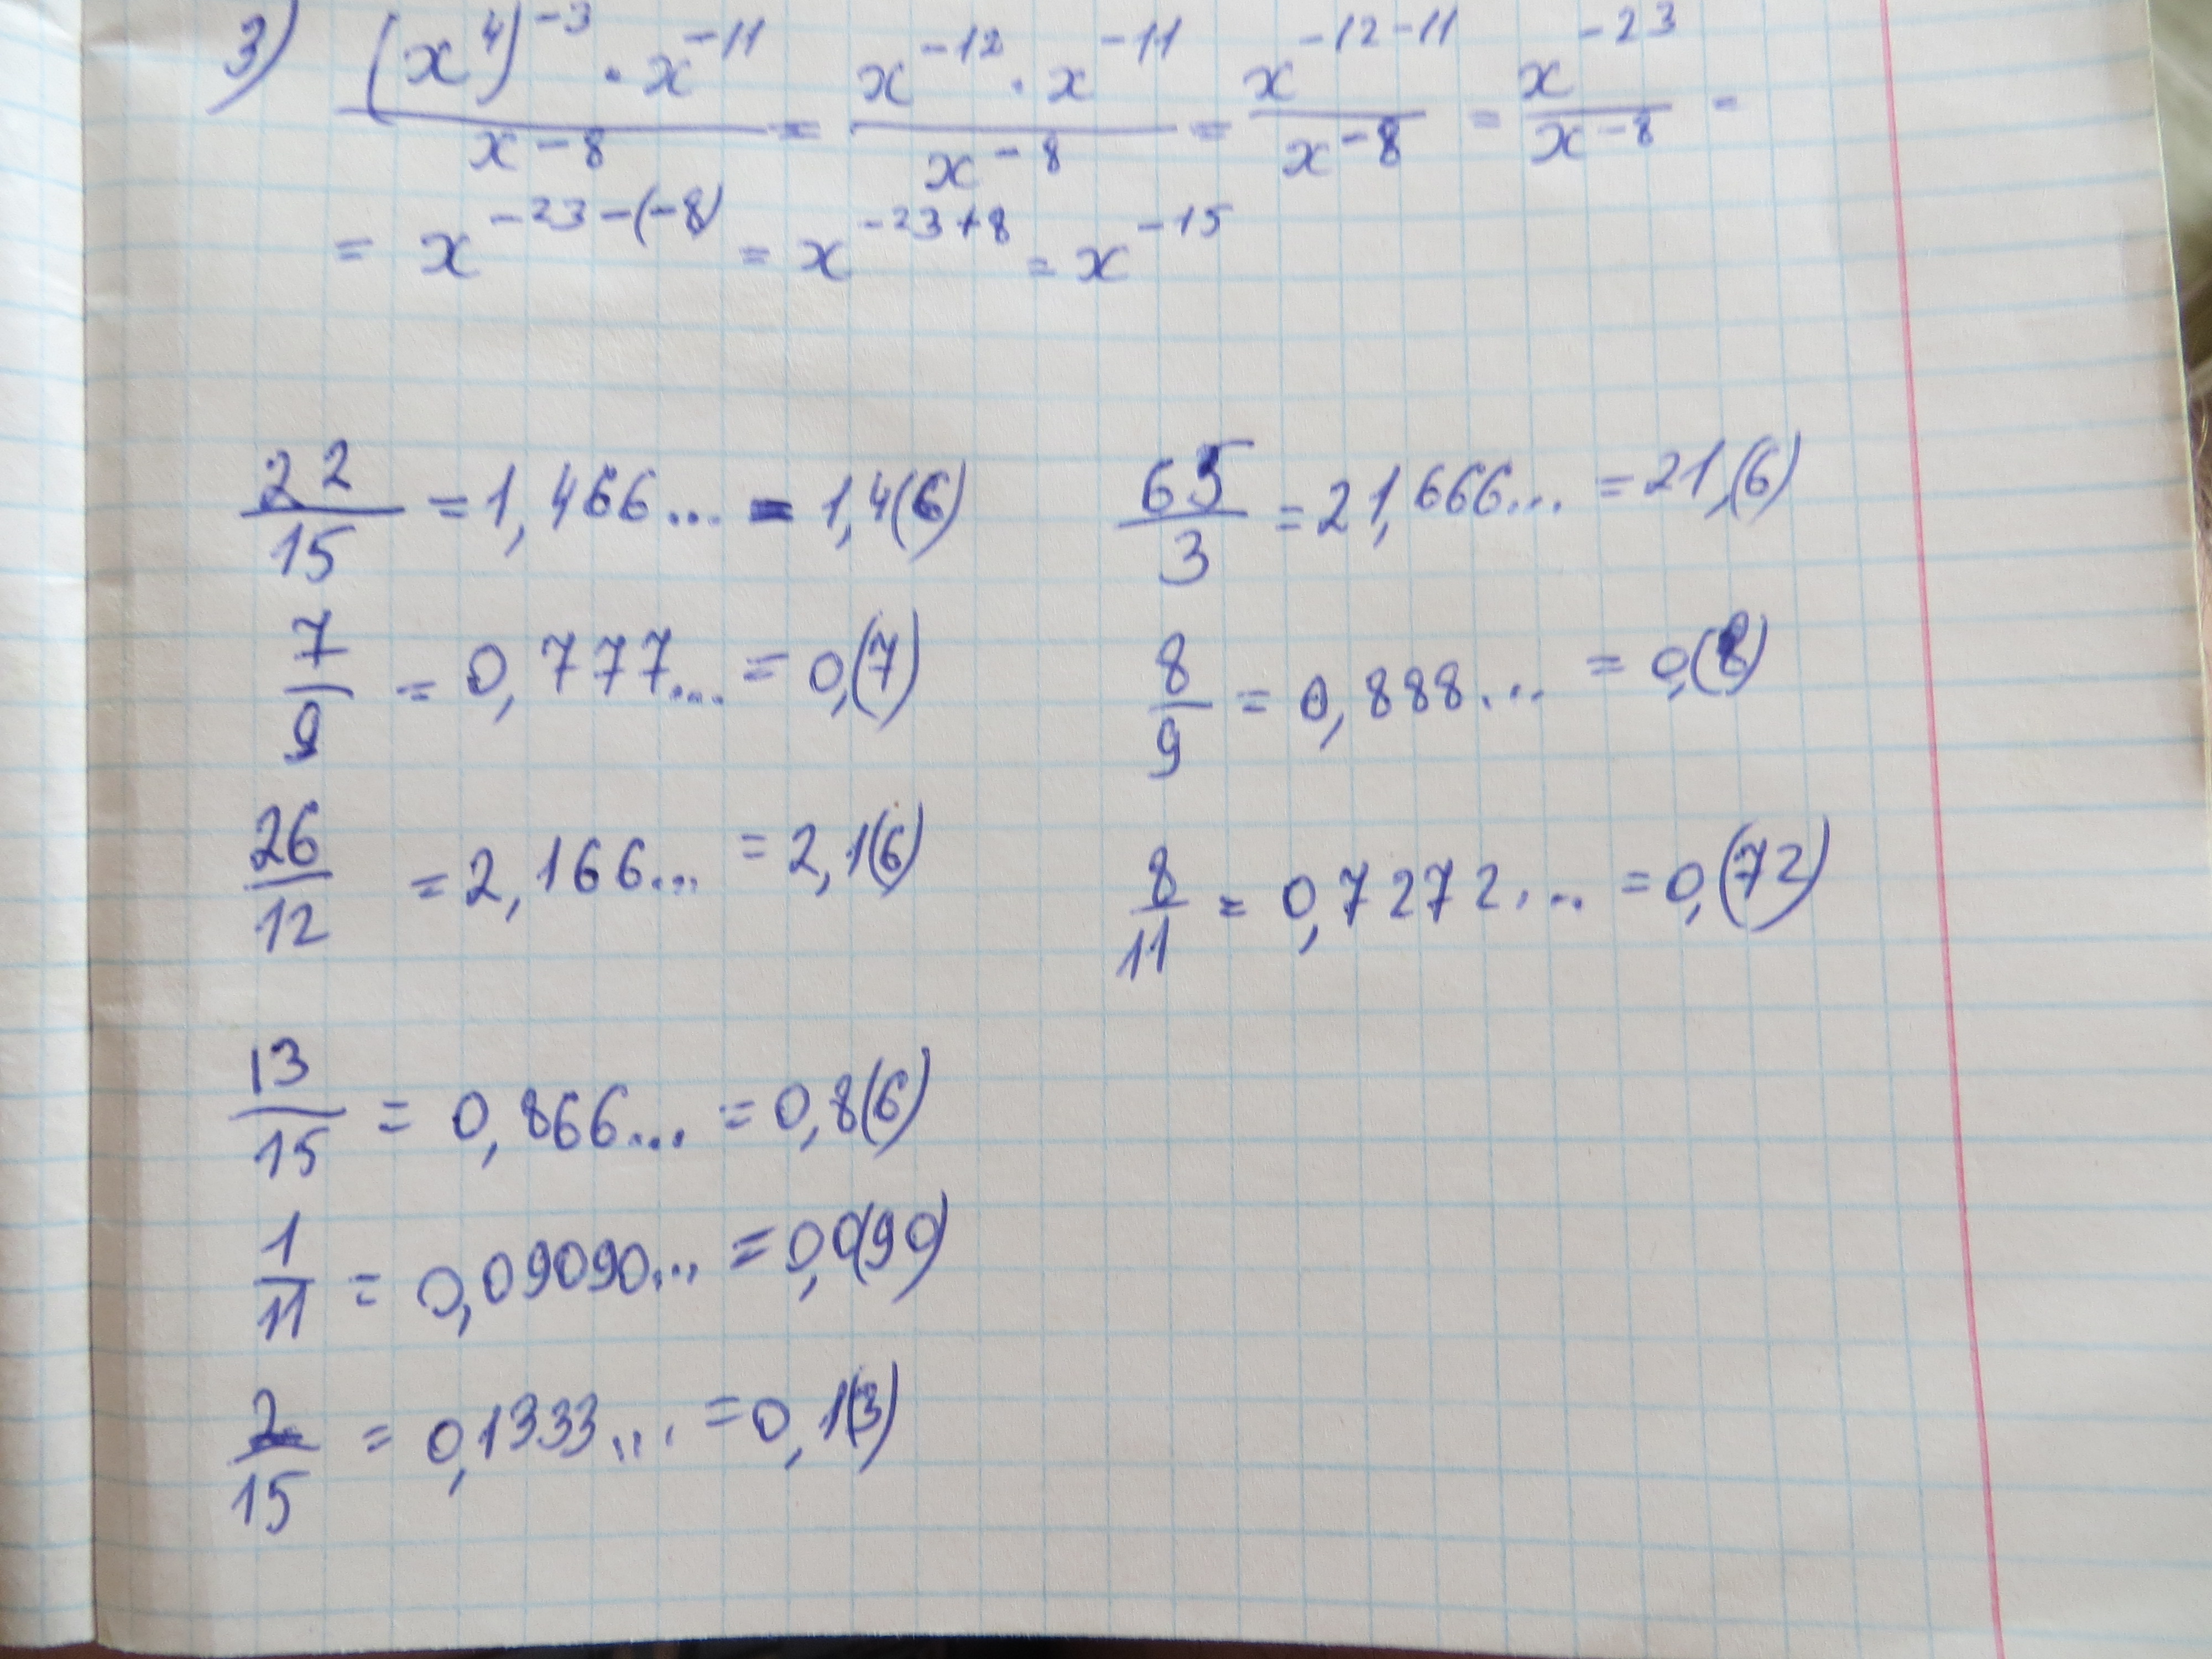 3) (x⁴)⁻³ · x⁻¹¹ / x⁻⁸ = x⁻¹² · x⁻¹¹ / x⁻⁸ = x⁻¹²⁻¹¹ / x⁻⁸ = x⁻²³ / x⁻⁸ =
= x⁻²³⁻⁽⁻⁸⁾ = x⁻²³⁺⁸ = x⁻¹⁵
22/15 = 1,466... = 1,4(6)
65/3 = 21,666... = 21,(6)
7/9 = 0,777... = 0,(7)
8/9 = 0,888... = 0,(8)
26/12 = 2,166... = 2,1(6)
8/11 = 0,7272... = 0,(72)
13/15 = 0,866... = 0,8(6)
1/11 = 0,09090... = 0,0(90)
2/15 = 0,1333... = 0,1(3)